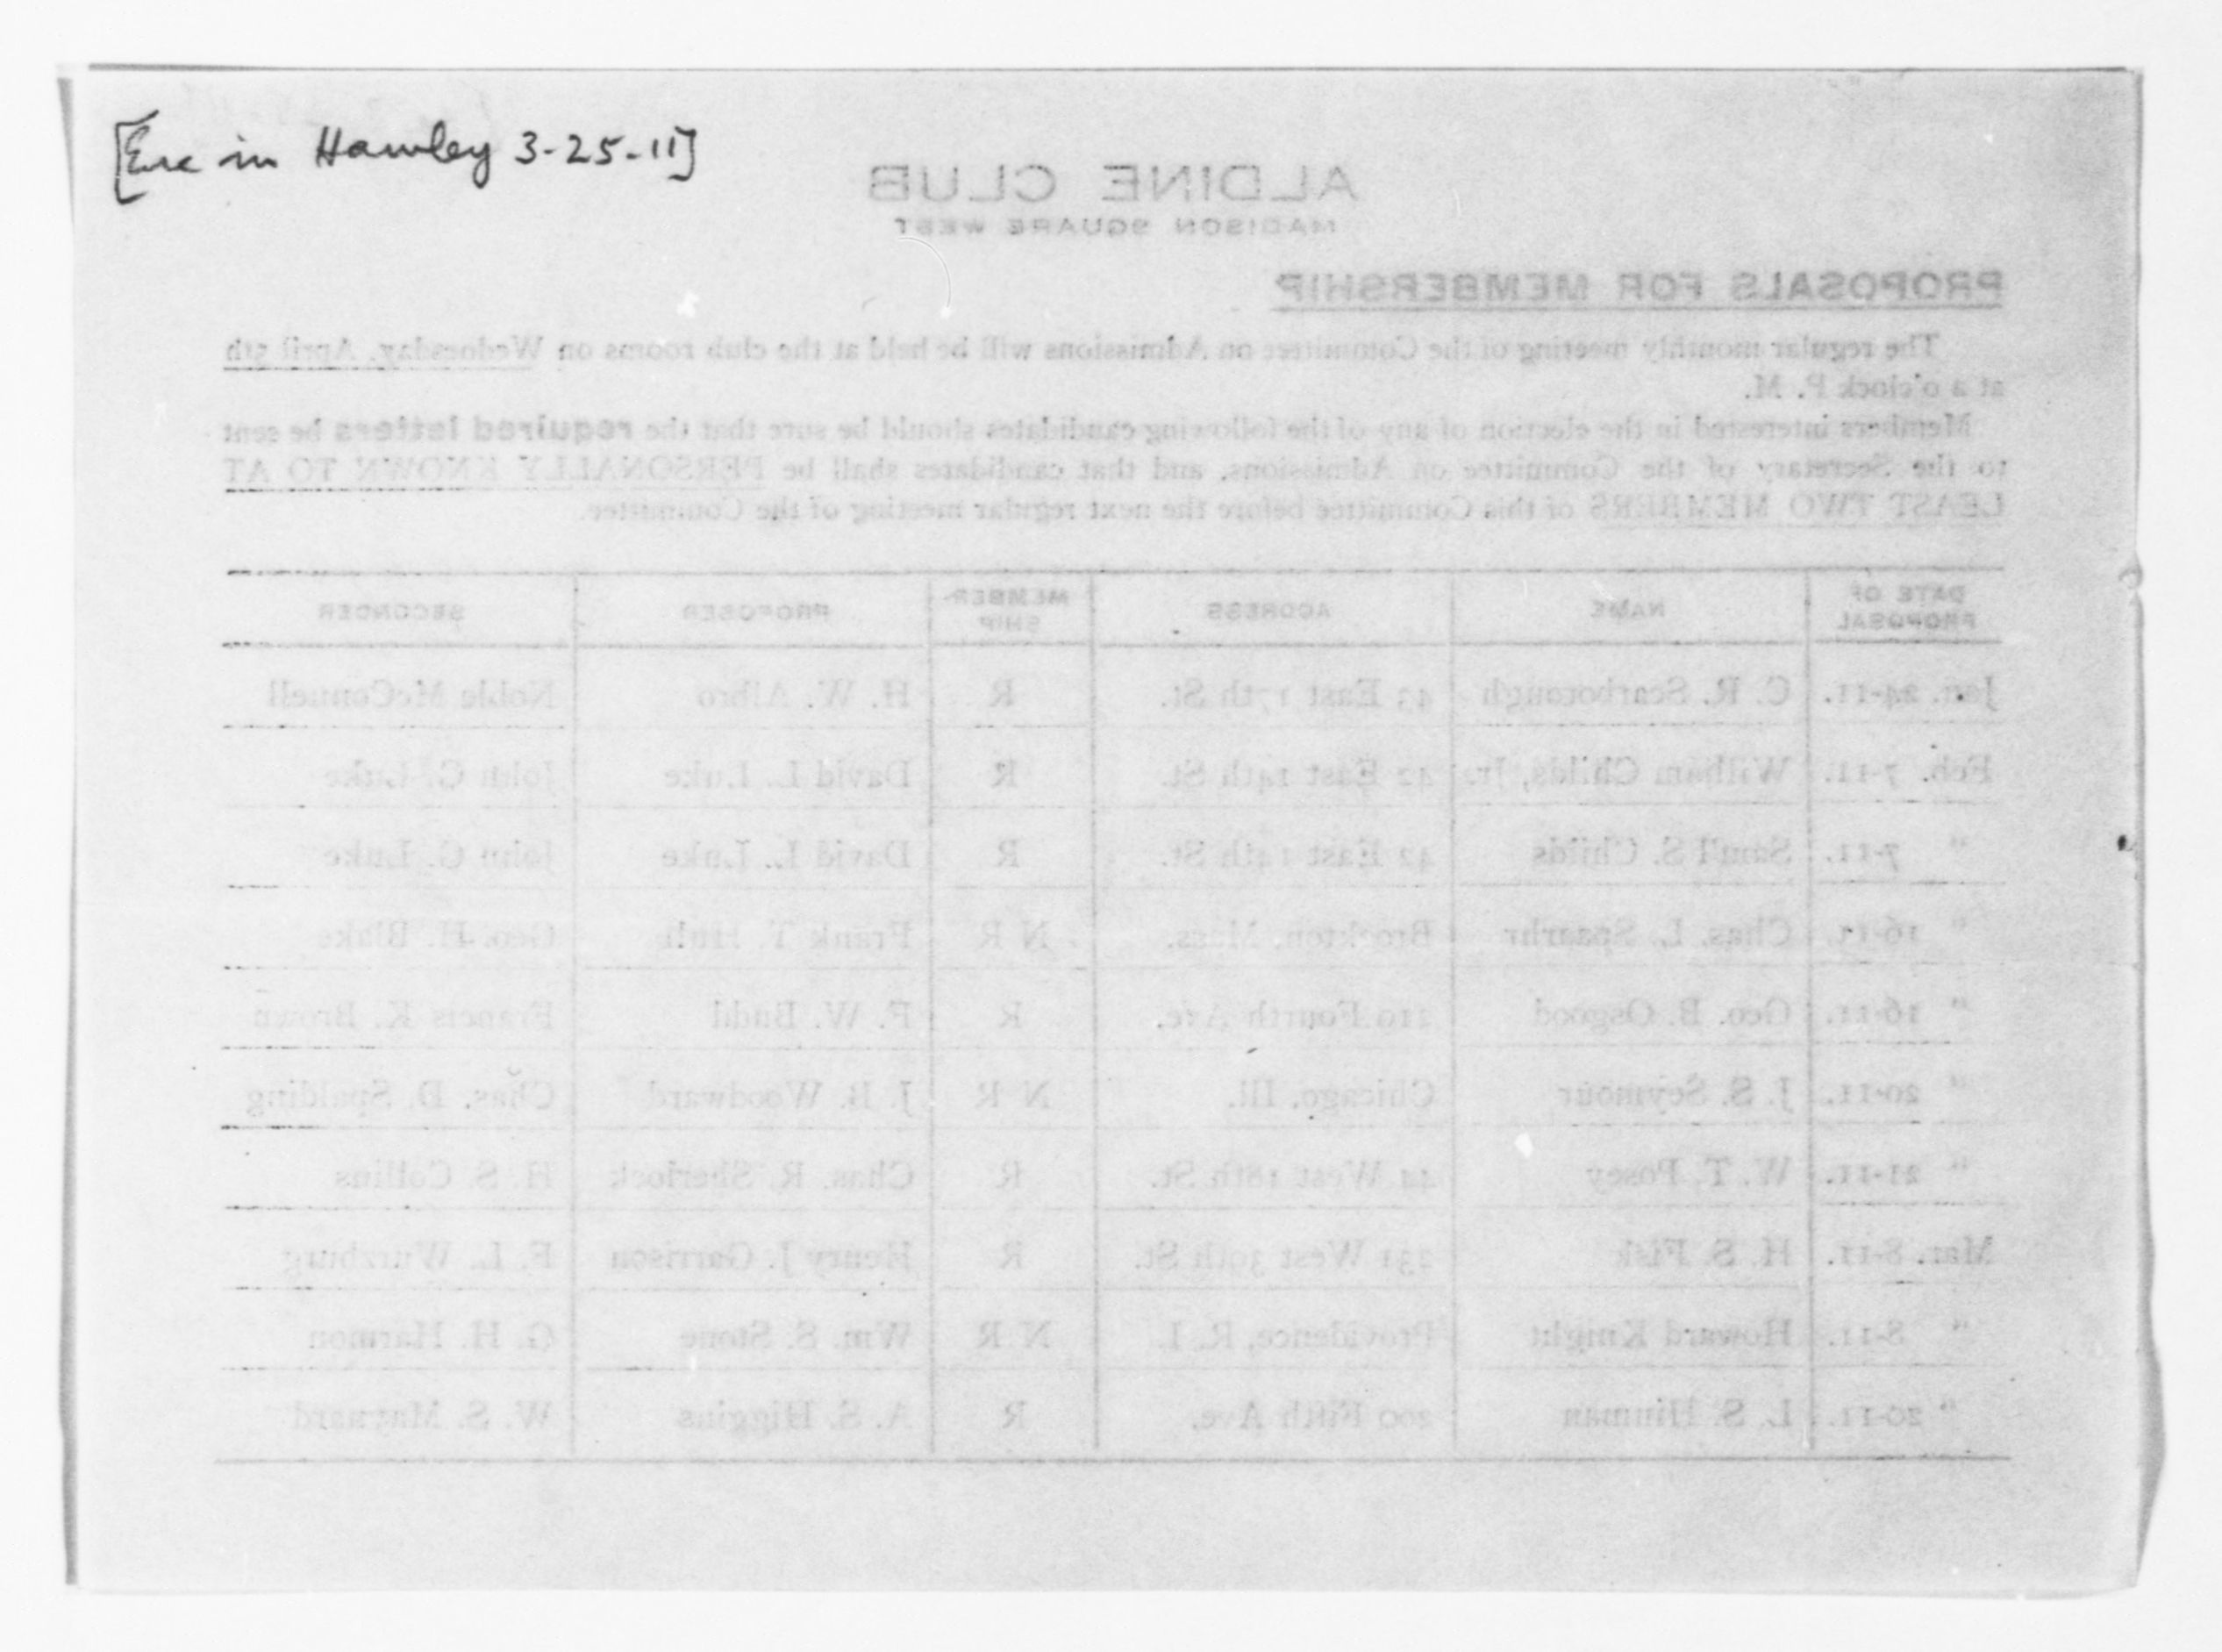 [Enc in Hawley 3-25-11]
ALDINE CLUB
MADISON SQUARE WEST
PROPOSALS FOR MEMBERSHIP
The regular monthly meeting of the Committee on Admissions will be held at the club rooms on Wednesday, April 5th
at 2 o'clock P. M.
Members interested in the election of any of the following candidates should be sure that the required letters be sent
to the Secretary of the Committee on Admissions, and that candidates shall be PERSONALLY KNOWN TO AT
LEAST TWO MEMBERS of this Committee before the next regular meeting of the Committee.
DATE OF PROPOSAL NAME ADDRESS MEMBER-SHIP PROPOSER SECONDER
Jan. 24-11. C. R. Scarborough 43 East 17th St. R H. W. Albro Noble McConnell
Feb. 7-11. William Childs, Jr. 42 East 14th St. R David L. Luke John G. Luke
" 7-11. Sam'l S. Childs 42 East 14th St. R David L. Luke John G. Luke
" 16-11. Chas. L. Spaarhr Brockton, Mass. N R Frank T. Geo. H. Blake
" 16-11. Geo. B. Osgood Fourth Ave. R F. W. Budd Francis K. Brown
" 20-11. J. S. Seymour Chicago, Ill. N R J. B. Woodward Chas. D. Spalding
" 21-11. W. T. Posey 44 West 18th St. R Chas. R. Sherlock H. S. Collins
Mar. 8-11. H. S. Fisk 231 West 39th St. R Henry J. Garrison F. L. Wurzburg
" 8-11. Howard Knight Providence, R. I. N R Wm. S. Stone G. H. Harmon
" 20-11. L. S. Hinman 200 Fifth Ave. R A. S. Higgins W. S. Maynard